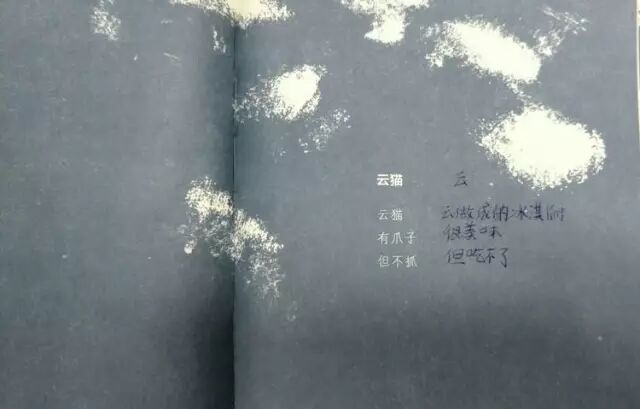 云猫 云
云猫 云做成的冰淇淋
有爪子 很美味
但不抓 但吃不了